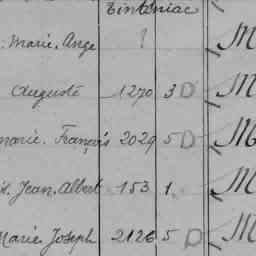 Tinténiac
Marie, Ange ? M
Auguste 1270 3 D M
marie, François 2029 5 D M
Jean, Albert 153 1 M
Marie Joseph 2126 5 D M